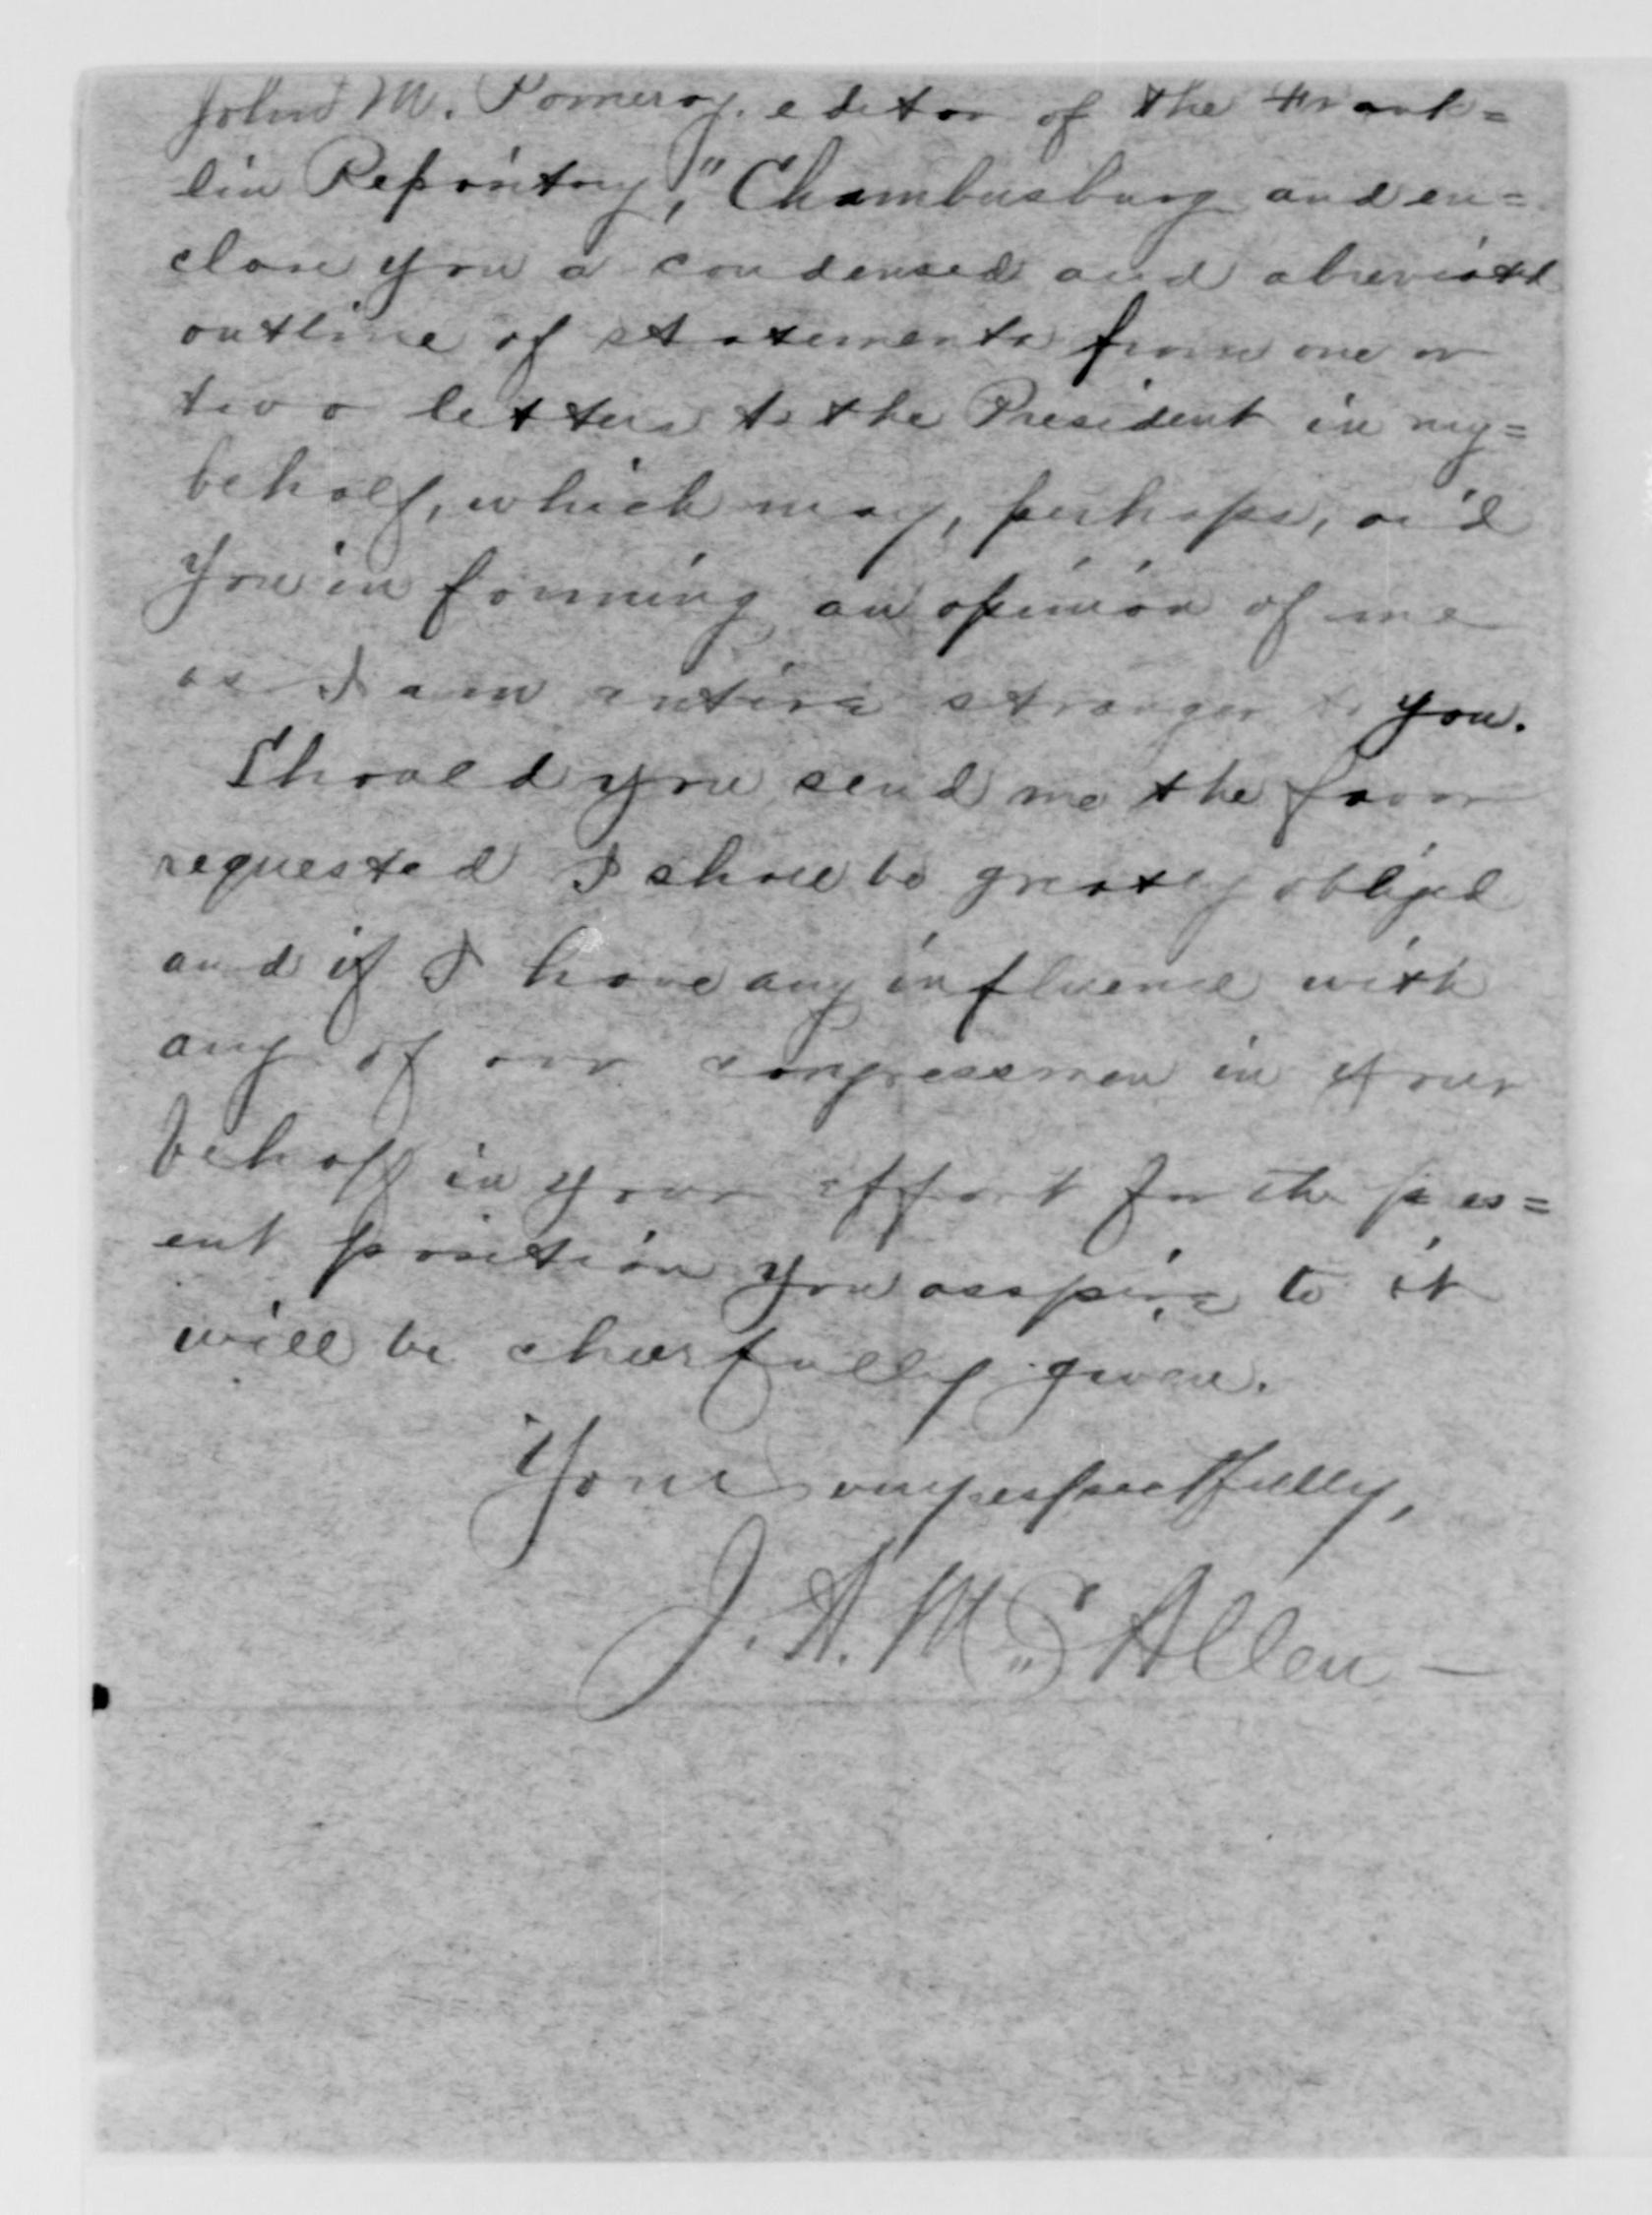 John M. Pomeroy, editor of the Frank=
lin Repository," Chambersburg and en=
close you a condensed and abreviated
outline of statements from one or
two letters to the President in my=
behalf, which may, perhaps, aid
you in forming an opinion of me
as I am entire stranger to you.
Should you send me the favor
requested I shall be greatly obliged
and if I have any influence with
any of our congressmen in your
behalf in your effort for the pres=
ent position you asspire to it
will be cheerfully given.
Yours very respectfully,
J. A. Mc Allen —